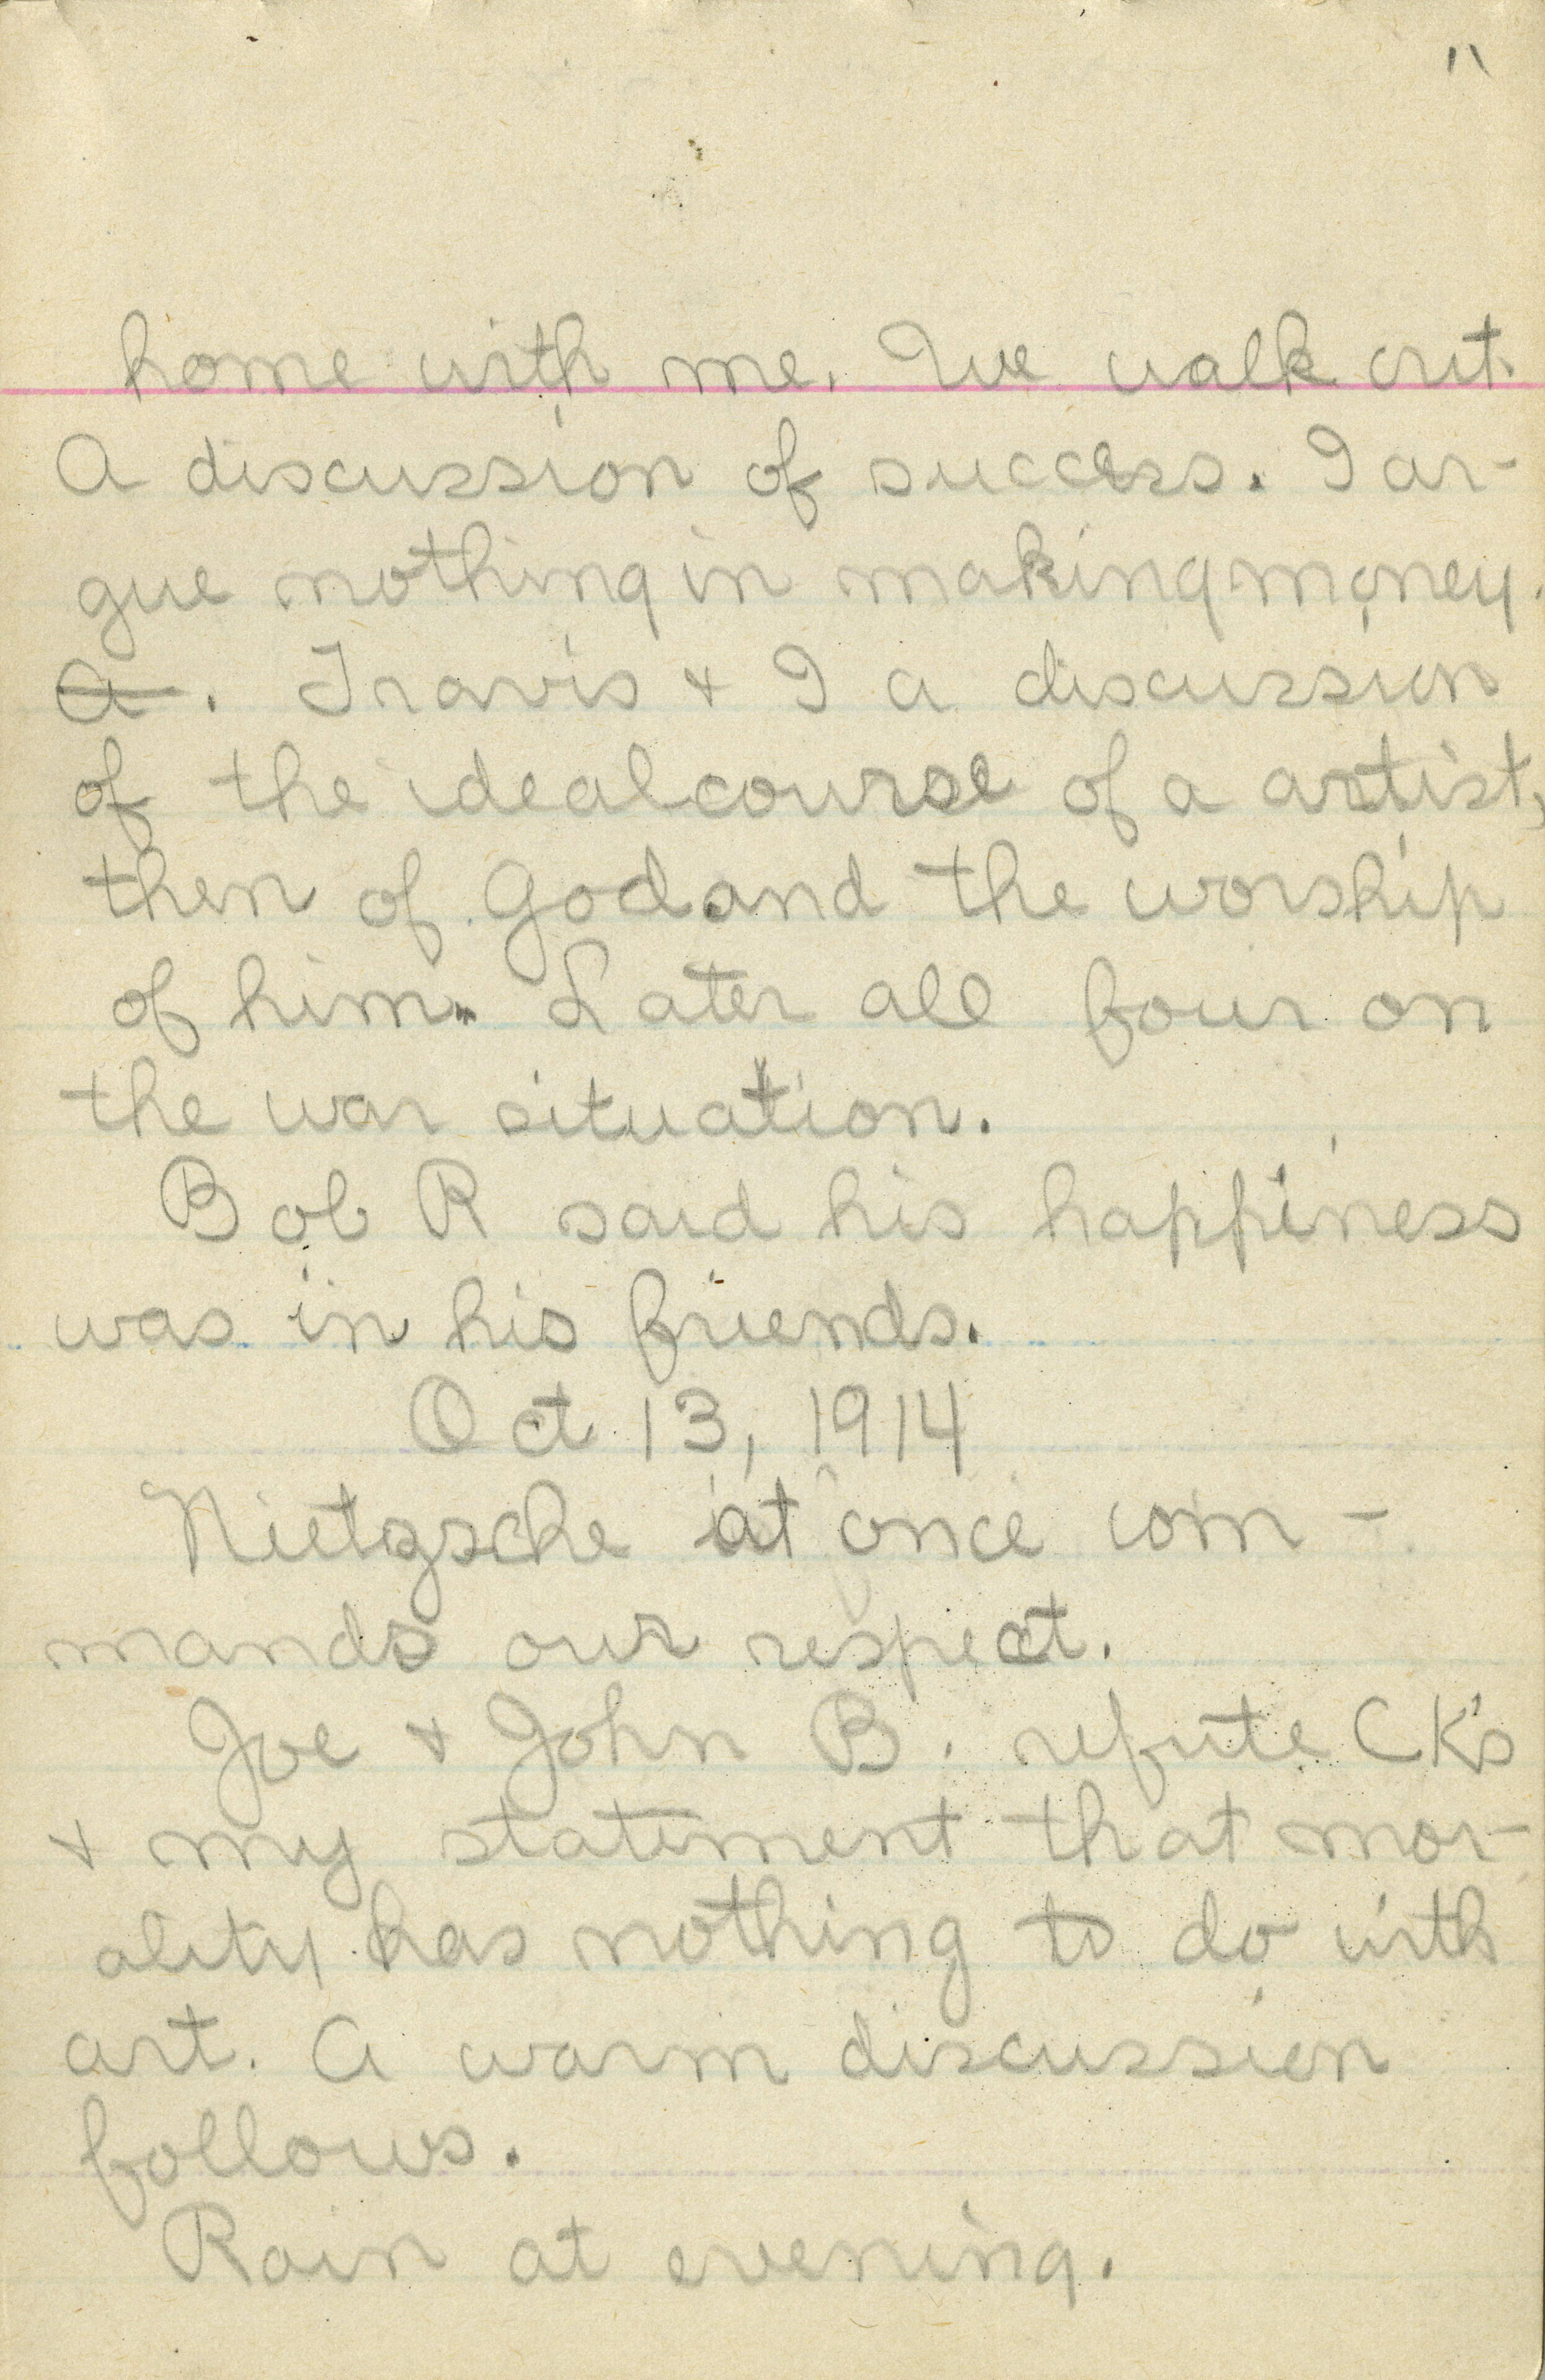 11
home with me. We walk out.
A discussion of success. I ar-
gue nothing in making money.
A. Travis + I a discussion
of the ideal course of a artist,
then of God and the worship
of him. Later all four on
the war situation.
Bob R said his happiness
was in his friends.
Oct 13, 1914
Nietzsche at once com-
mands our respect.
Joe + John B. refute CK's
+ my statement that mor-
ality has nothing to do with
art. A warm discussion
follows.
Rain at evening.